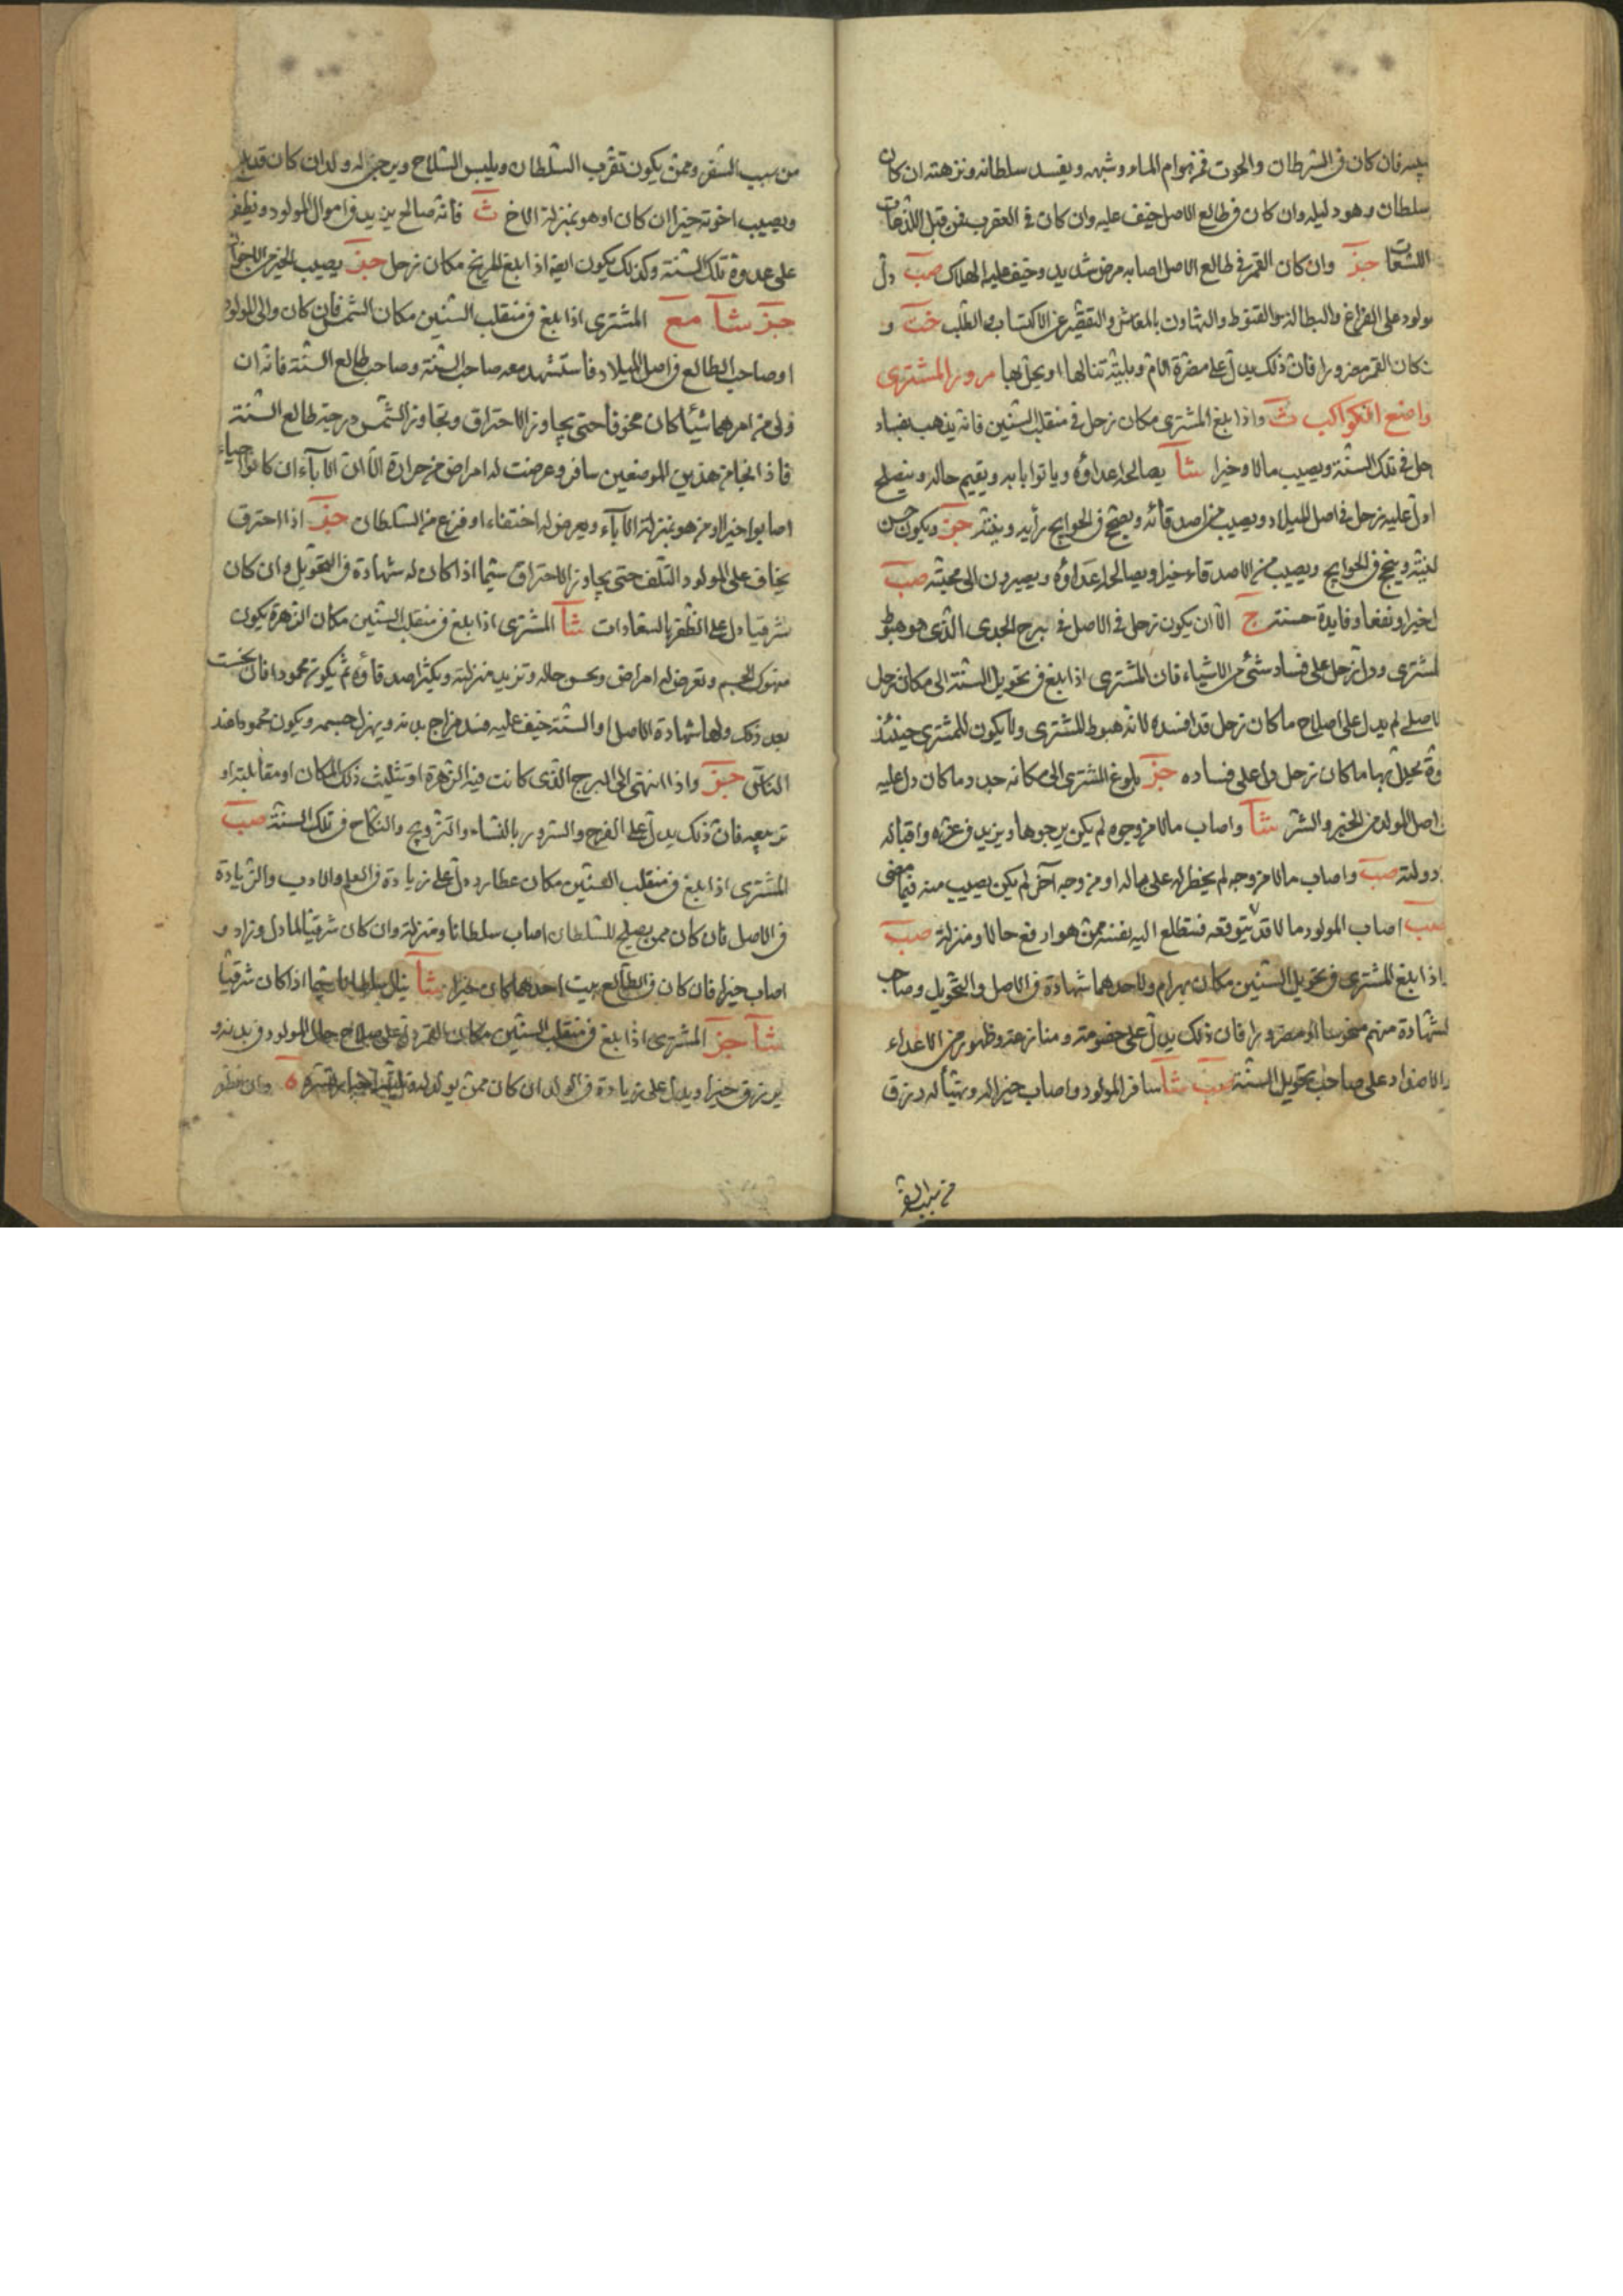 فان كان فى السرطان والحوت فمن هوام الماء وشبهه ويفسد سلطانه ونزهته ان كان
سلطان وهو دليله وان كان فى طالع الاصل خيف عليه وان كان فى العقرب فمن قبل اللذعات
اللسعات جز وان كان القمر فى طالع الاصل اصابه مرض شديد وخيف عليه الهلاك صب دل
مولود على الفراغ والبطالة والقنوط والتهاون بالمعاش والتقصير عن الاكتساب والطلب خت و
كان القمر مضرورا فان ذلك يدل على مضرة الام وبلية تنالها او يحل بها مرور المشترى
واضع الكواكب ث واذا بلغ المشترى مكان زحل فى منقلب السنين فانه يذهب بفساد
حل فى تلك السنة ويصيب مالا وخيرا شا يصالحه اعداؤه وياتوا بابه ويقيم حاله وينصلح
ادل عليه زحل فى اصل الميلاد ويصيب من اصدقائه وينجح فى الحوايج رأيه ونيته جز ويكون حسن
النية وينجح فى الحوايج ويصيب من الاصدقاء خيرا ويصالحه اعداؤه ويصيرون الى محبته صب
خيرا ونفعا وفايدة حسنة ج الا ان يكون زحل فى الاصل فى برج الجدى الذى هو هبوط
المشترى ودل زحل على فساد شئ من الاشياء فان المشترى اذا بلغ فى تحويل السنة الى مكان زحل
لاصلى لم يدل على اصلاح ما كان زحل قد افسده لانه هبوط المشترى ولا يكون للمشترى حينئذ
قوة يحيل بها ما كان زحل دل على فساده جز بلوغ المشترى الى مكانه جيد وما كان دل عليه
اصل المولد من الخير والشر شا واصاب مالا من وجوه لم يكن يرجوها ويزيد فى عزه واقباله
دولته صب واصاب مالا من وجه لم يخطر له على باله او من وجه آخر لم يكن يصيب منه فيما مضى
صب اصاب المولود مالا قد يتوقعه فتطلع اليه نفسه ممن هو ارفع حالا ومنزلة صب
اذا بلغ المشترى فى تحويل السنين مكان بهرام ولاحدهما شهادة فى الاصل والتحويل وصاحب
الشهادة منهم منحوسا او مضرورا فان ذلك يدل على خصومة ومنازعة وظهور من الاعداء
والاضداد على صاحب تحويل السنة صب شا سافر المولود واصاب خيرا له ويتهيأ له رزق
من سبب السفر
من سبب السفر وممن يكون تقرب السلطان ويلبس السلاح ويرجى له ولد ان كان
ويصيب اخوته خيرا ان كان او هو بمنزلة الاخ ث فانه صالح يزيد فى اموال المولود ويظفر
على عدوه تلك السنة وكذلك يكون ايضا اذا بلغ المريخ مكان زحل جز يصيب الخير من الاخوان
جز شا مع المشترى اذا بلغ فى منقلب السنين مكان الشمس فان كان والى المولود
او صاحب الطالع فى اصل الميلاد فاستشهد معه صاحب السنة وصاحب طالع السنة فانه ان
ولى من امرهما شيئا كان مخوفا حتى يجاوز الاحتراق وتجاوز الشمس درجة طالع السنة
فاذا نجا من هذين الموضعين سافر وعرضت له امراض من حرارة الا ان الاباء ان كانوا احياء
اصابوا خيرا او من هو بمنزلة الاباء ويعرض له اختفاء او فزع من السلطان جز اذا احترق
يخاف على المولود التلف حتى يجاوز الاحتراق سيما اذا كان له شهادة فى التحويل وان كان
شرقيا دل على الظفر بالسعادات شا المشترى اذا بلغ فى منقلب السنين مكان الزهرة يكون
منهوك الجسم وتعرض له امراض ويحسن حاله وتزيد منزلته ويكثر اصدقاؤه ثم يكون محمودا فان نحست
بعد ذلك ولها شهادة الاصل او السنة خيف عليه فساد مزاج بدنه ويهزل جسمه ويكون محمودا عند
الناس جز واذا انتهى الى البرج الذى كانت فيه الزهرة او تثليث ذلك المكان او مقابلته او
تربيعه فان ذلك يدل على الفرح والسرور بالنساء والتزويج والنكاح فى تلك السنة صب
المشترى اذا بلغ فى منقلب السنين مكان عطارد دل على زيادة فى العلم والادب والزيادة
فى الاصل فان كان ممن يصلح للسلطان اصاب سلطانا ومنزلة وان كان شرقيا لما دل وزاد و
اصاب خيرا فان كان فى الطالع بيت احدهما كان خيرا شا ينال سلطانا سيما اذا كان شرقيا
شا جز المشترى اذا بلغ فى منقلب السنين مكان القمر دل على صلاح حال المولود فى بدنه و
يرزق خيرا ويدل على زيادة فى الولد ان كان ممن يولد له